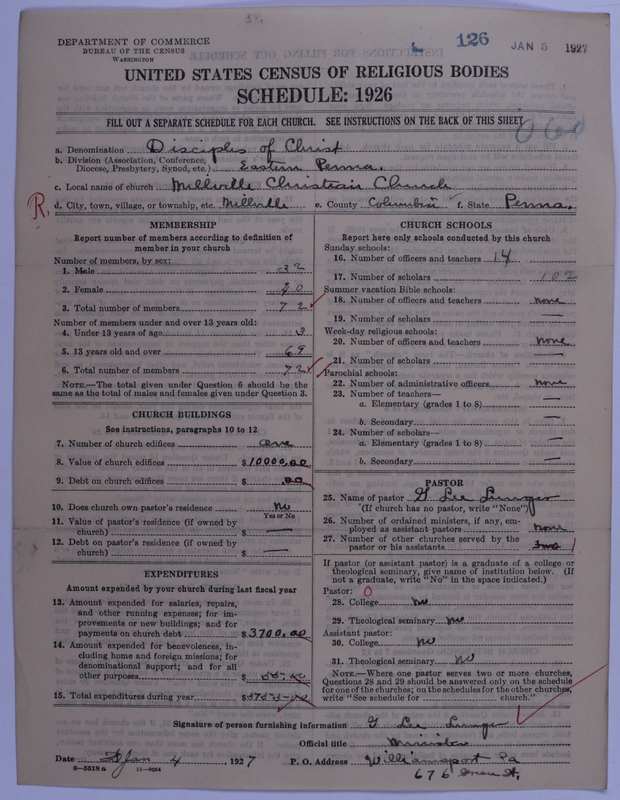 126
JAN 5 1927
DEPARTMENT OF COMMERCE
BUREAU OF THE CENSUS
WASHINGTON
UNITED STATES CENSUS OF RELIGIOUS BODIES
SCHEDULE: 1926
FILL OUT A SEPARATE SCHEDULE FOR EACH CHURCH. SEE INSTRUCTIONS ON THE BACK OF THIS SHEET
060
a. Denomination Disciples of Christ
b. Division (Association, Conference, Diocese, Presbytery, Synod, etc.) Eastern Penna.
c. Local name of church Millville Christian Church
R. d. City, town, village, or township, etc. Millville e. County Columbia f. State Penna.
MEMBERSHIP
Report number of members according to definition of
member in your church
Number of members, by sex:
1. Male 32
2. Female 40
3. Total number of members 72
Number of members under and over 13 years old:
4. Under 13 years of age 3
5. 13 years old and over 69
6. Total number of members 72
NOTE.—The total given under Question 6 should be the
same as the total of males and females given under Question 3.
CHURCH BUILDINGS
See instructions, paragraphs 10 to 12
7. Number of church edifices one
8. Value of church edifices $10000.00
9. Debt on church edifices $ .00
10. Does church own pastor's residence? No
Yes or No
11. Value of pastor's residence (if owned by
church) $ —
12. Debt on pastor's residence (if owned by
church) $ —
EXPENDITURES
Amount expended by your church during last fiscal year
13. Amount expended for salaries, repairs,
and other running expenses; for im-
provements or new buildings; and for
payments on church debt $3700.00
14. Amount expended for benevolences, in-
cluding home and foreign missions; for
denominational support; and for all
other purposes $55.00
15. Total expenditures during year $3755.00
CHURCH SCHOOLS
Report here only schools conducted by this church
Sunday schools:
16. Number of officers and teachers 14
17. Number of scholars 102
Summer vacation Bible schools:
18. Number of officers and teachers none
19. Number of scholars —
Week-day religious schools:
20. Number of officers and teachers none
21. Number of scholars —
Parochial schools:
22. Number of administrative officers none
23. Number of teachers—
a. Elementary (grades 1 to 8) —
b. Secondary —
24. Number of scholars—
a. Elementary (grades 1 to 8) —
b. Secondary —
PASTOR
25. Name of pastor G Lee
(If church has no pastor, write "None")
26. Number of ordained ministers, if any, em-
ployed as assistant pastors none
27. Number of other churches served by the
pastor or his assistants two 1
If pastor (or assistant pastor) is a graduate of a college or
theological seminary, give name of institution below. (If
not a graduate, write "No" in the space indicated.)
Pastor: 0
28. College no
29. Theological seminary no
Assistant pastor:
30. College no
31. Theological seminary no
NOTE.—Where one pastor serves two or more churches,
Questions 28 and 29 should be answered only on the schedule
for one of the churches; on the schedules for the other churches,
write "See schedule for church."
Signature of person furnishing information G Lee
Official title Minister
Date Jan 4, 1927 P. O. Address Williamsport Pa
676 St.
8—5518 a 11—9054